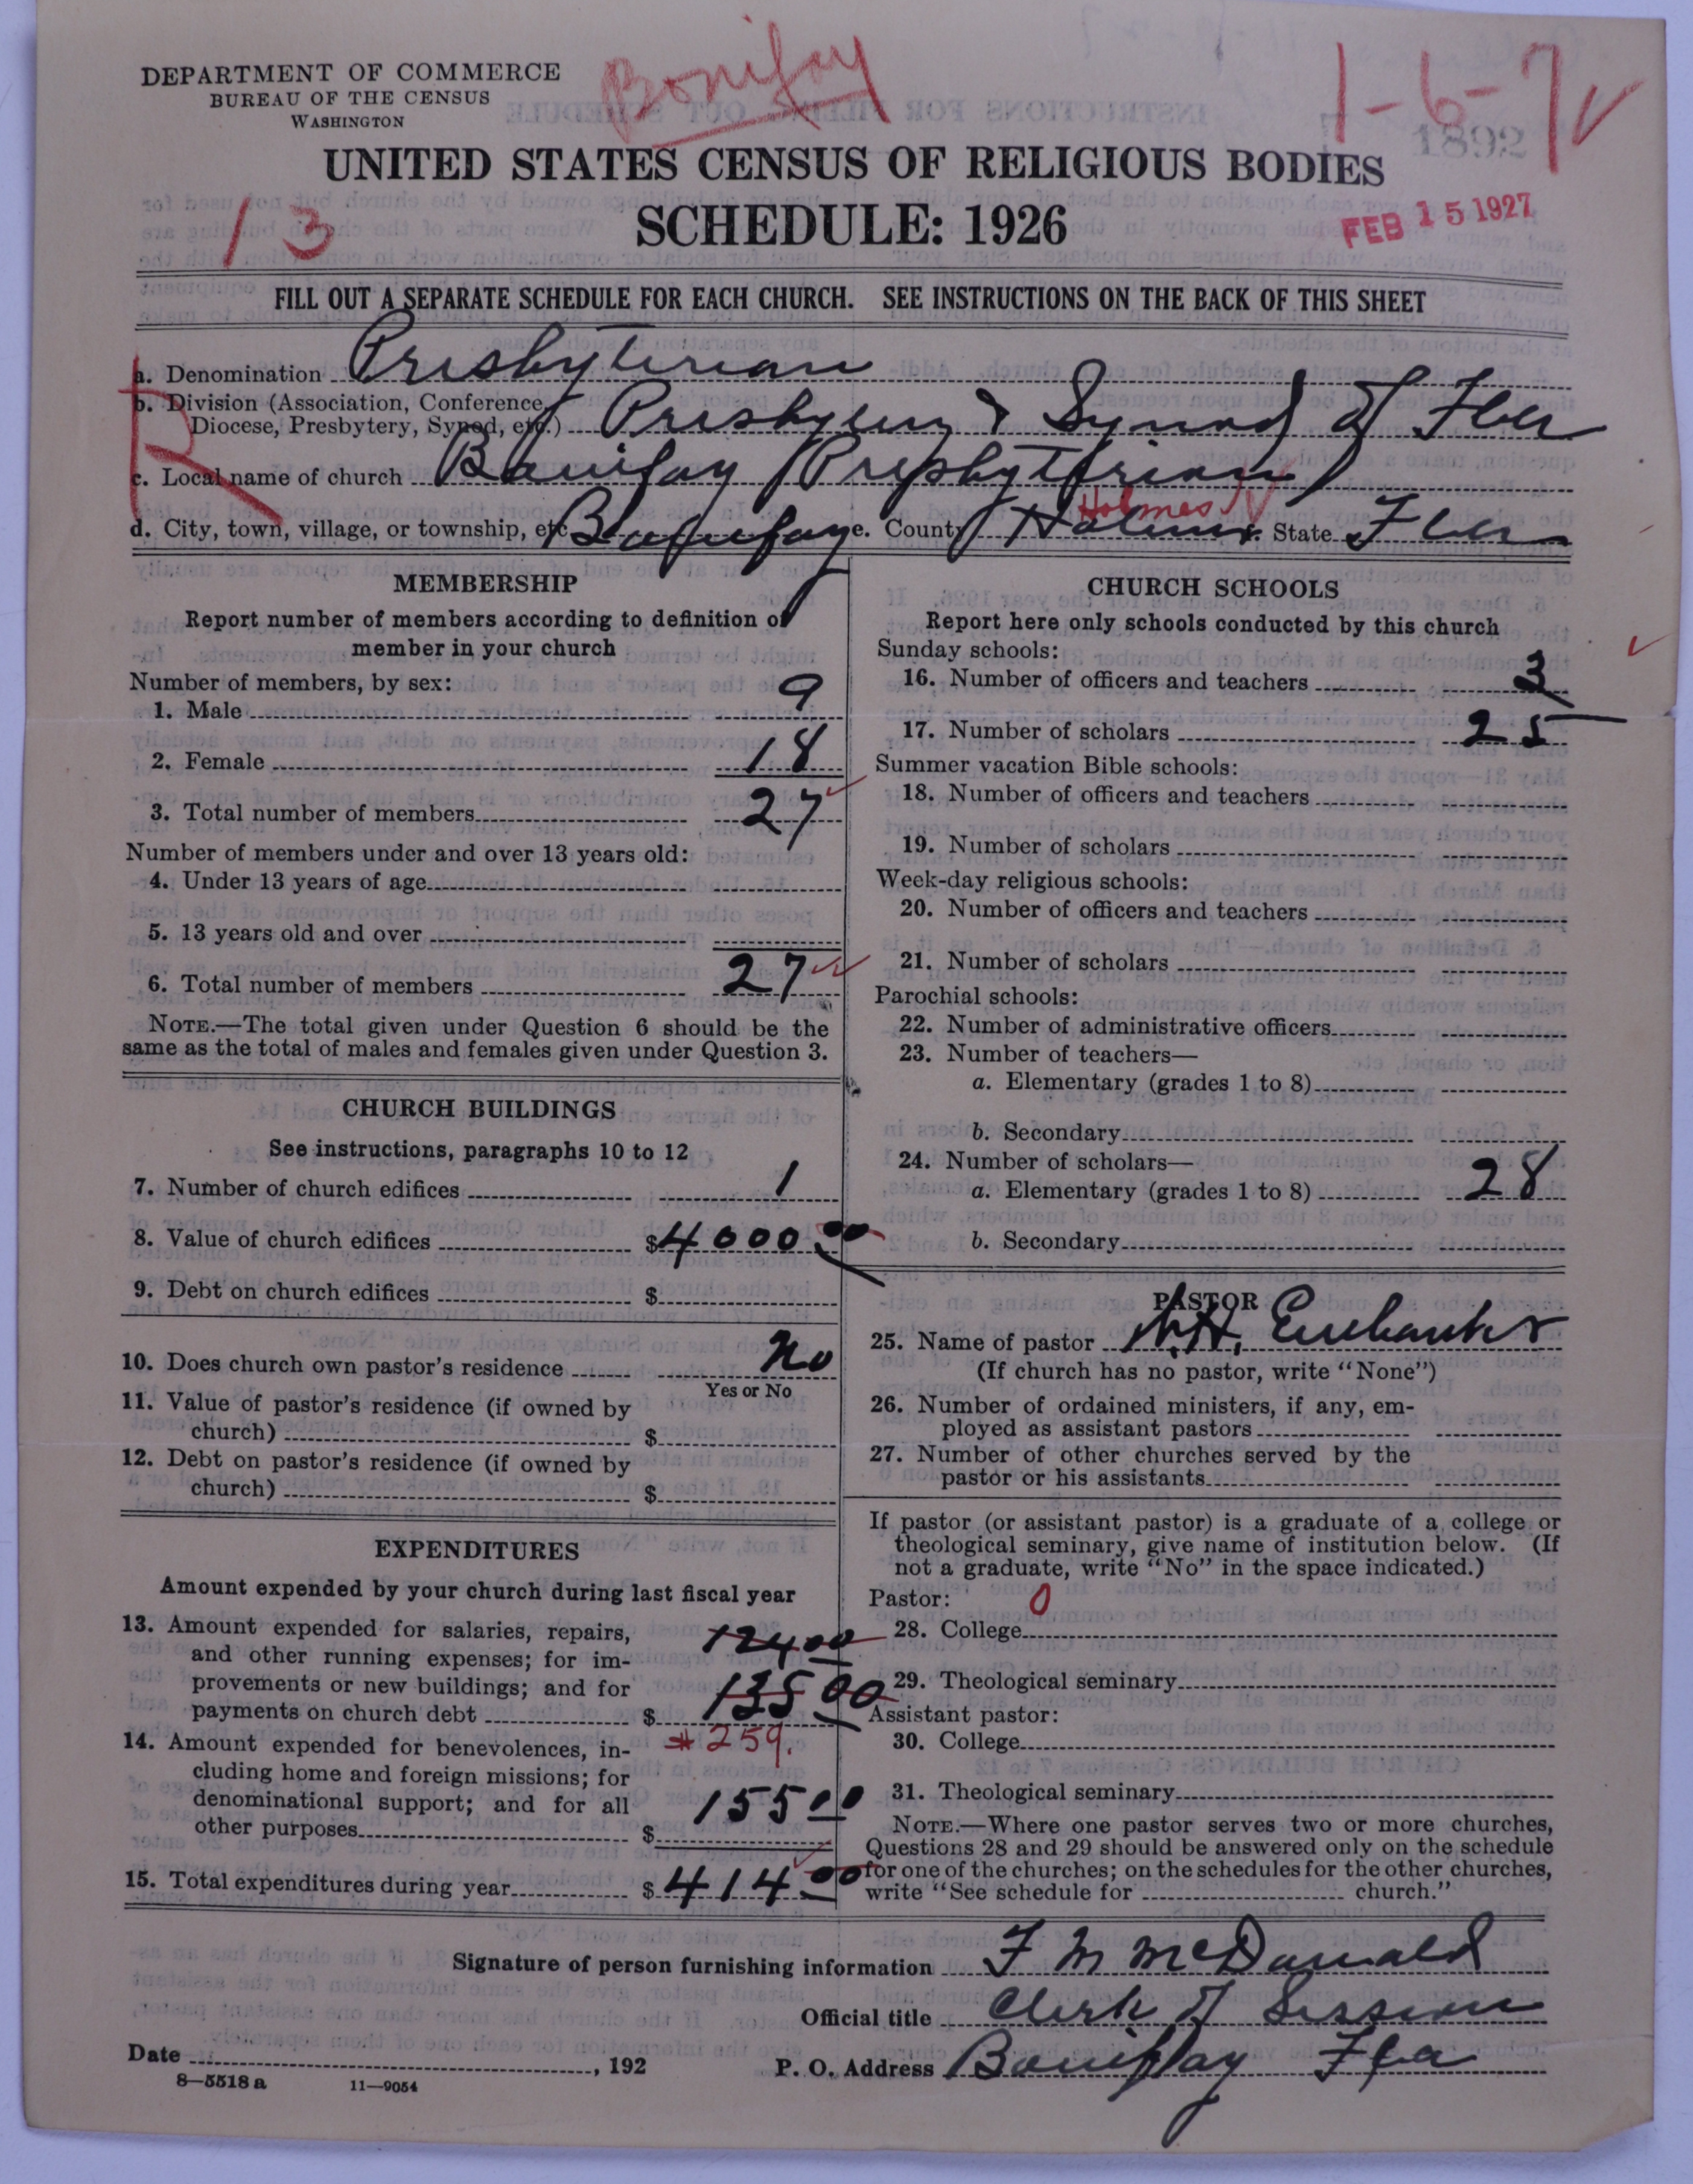 DEPARTMENT OF COMMERCE
BUREAU OF THE CENSUS
WASHINGTON
Bonifay
1-6-7
1892
UNITED STATES CENSUS OF RELIGIOUS BODIES
SCHEDULE: 1926
13
FEB 15 1927
FILL OUT A SEPARATE SCHEDULE FOR EACH CHURCH. SEE INSTRUCTIONS ON THE BACK OF THIS SHEET
a. Denomination Presbyterian
b. Division (Association, Conference,
Diocese, Presbytery, Synod, etc.) Presbytery & Synod of Fla
c. Local name of church Bonifay Presbyterian
d. City, town, village, or township, etc. Bonifay e. County Holmes Holmes State Fla
MEMBERSHIP
Report number of members according to definition of
member in your church
Number of members, by sex:
1. Male 9
2. Female 18
3. Total number of members 27
Number of members under and over 13 years old:
4. Under 13 years of age
5. 13 years old and over
6. Total number of members 27
NOTE.—The total given under Question 6 should be the
same as the total of males and females given under Question 3.
CHURCH BUILDINGS
See instructions, paragraphs 10 to 12
7. Number of church edifices 1
8. Value of church edifices $4000.00
9. Debt on church edifices $
10. Does church own pastor's residence No
Yes or No
11. Value of pastor's residence (if owned by
church) $
12. Debt on pastor's residence (if owned by
church) $
EXPENDITURES
Amount expended by your church during last fiscal year
13. Amount expended for salaries, repairs, 124 00
and other running expenses; for im-
provements or new buildings; and for
payments on church debt $ 135 00
259.
14. Amount expended for benevolences, in-
cluding home and foreign missions; for
denominational support; and for all
other purposes $ 155 00
15. Total expenditures during year $414 00
CHURCH SCHOOLS
Report here only schools conducted by this church
Sunday schools:
16. Number of officers and teachers 3
17. Number of scholars 25
Summer vacation Bible schools:
18. Number of officers and teachers
19. Number of scholars
Week-day religious schools:
20. Number of officers and teachers
21. Number of scholars
Parochial schools:
22. Number of administrative officers
23. Number of teachers—
a. Elementary (grades 1 to 8)
b. Secondary
24. Number of scholars—
a. Elementary (grades 1 to 8) 28
b. Secondary
PASTOR
25. Name of pastor H. Eubanks
(If church has no pastor, write "None")
26. Number of ordained ministers, if any, em-
ployed as assistant pastors
27. Number of other churches served by the
pastor or his assistants
If pastor (or assistant pastor) is a graduate of a college or
theological seminary, give name of institution below. (If
not a graduate, write "No" in the space indicated.)
Pastor: 0
28. College
29. Theological seminary
Assistant pastor:
30. College
31. Theological seminary
NOTE.—Where one pastor serves two or more churches,
Questions 28 and 29 should be answered only on the schedule
for one of the churches; on the schedules for the other churches,
write "See schedule for church."
Signature of person furnishing information F M McDonald
Official title Clerk of Session
Date , 192 P. O. Address Bonifay Fla
8—5518 a 11—9054